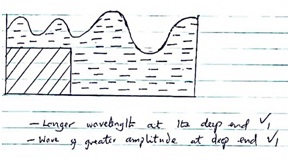 - Longer wavelength at the deep end √1
- Wave of greater amplitude at deep end √1